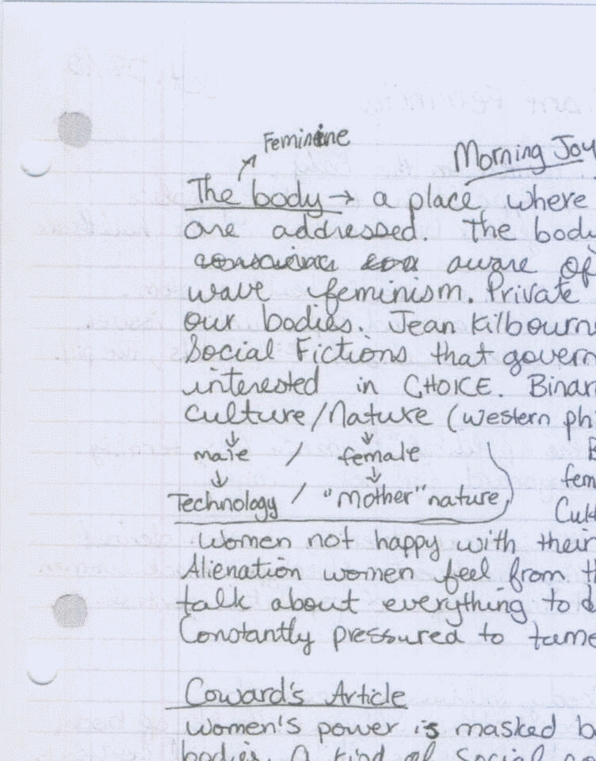 Feminine
Morning Joy
The body → a place where
are addressed. The body
aware of
wave feminism. Private
our bodies. Jean Kilbourne
Social Fictions that govern
interested in CHOICE. Binar
culture/Nature (western phi
male / female
fem
Technology / "Mother" nature
Cult
Women not happy with their
Alienation women feel from th
talk about everything to d
Constantly pressured to tame
Coward's Article
women's power is masked b
bodies. A kind of social